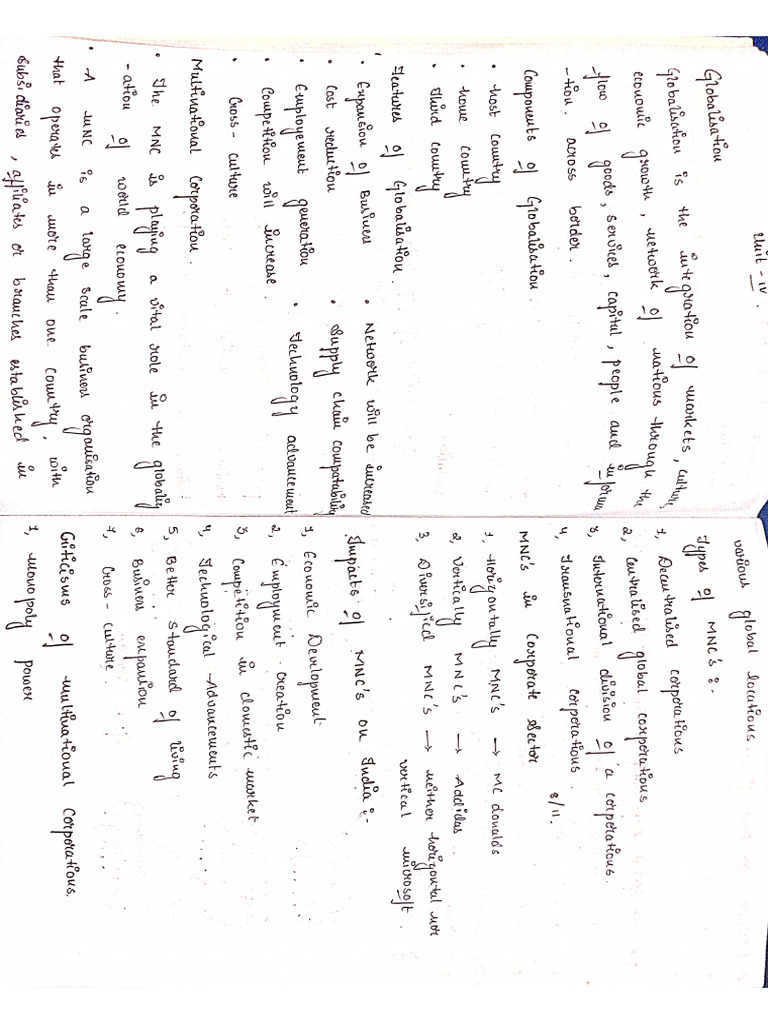 Unit - IV.
Globalisation
Globalisation is the integration of markets, culture,
economic growth, network of nations through the
flow of goods, services, capital, people and inform
-tion. across border.
Components of Globalisation.
• host country
• home country
• Third country
Features of Globalisation.
• Expansion of Business • Network will be increased
• Cost reduction • Supply chain compatability
• Employement generation • Technology advancement
• Competition will increase.
• Cross - culture
Multinational Corporation.
• The MNC is playing a vital role in the globalis
-ation of world economy.
• A MNC is a large scale business organisation
that operates in more than one country, with
subsidiaries, affiliates or branches established in
various global locations
Types of MNC's :-
1, Decentralised corporations
2, Centralised global corporations
3, International division of a corporations.
4, Transnational corporations. 8/11.
MNC's in Corporate Sector
1, Horizontally MNC's → MC donalds
2, Vertically MNC's → Addidas
3, Diversified MNC's → neither horizontal nor
vertical microsoft.
Impacts of MNC's on India :-
1, Economic Development
2, Employment creation
3, Competition in domestic market
4, Technological Advancements
5, Better standard of living
6, Business expantion
7, Cross - culture.
Criticisms of multinational Corporations.
1, Monopoly Power